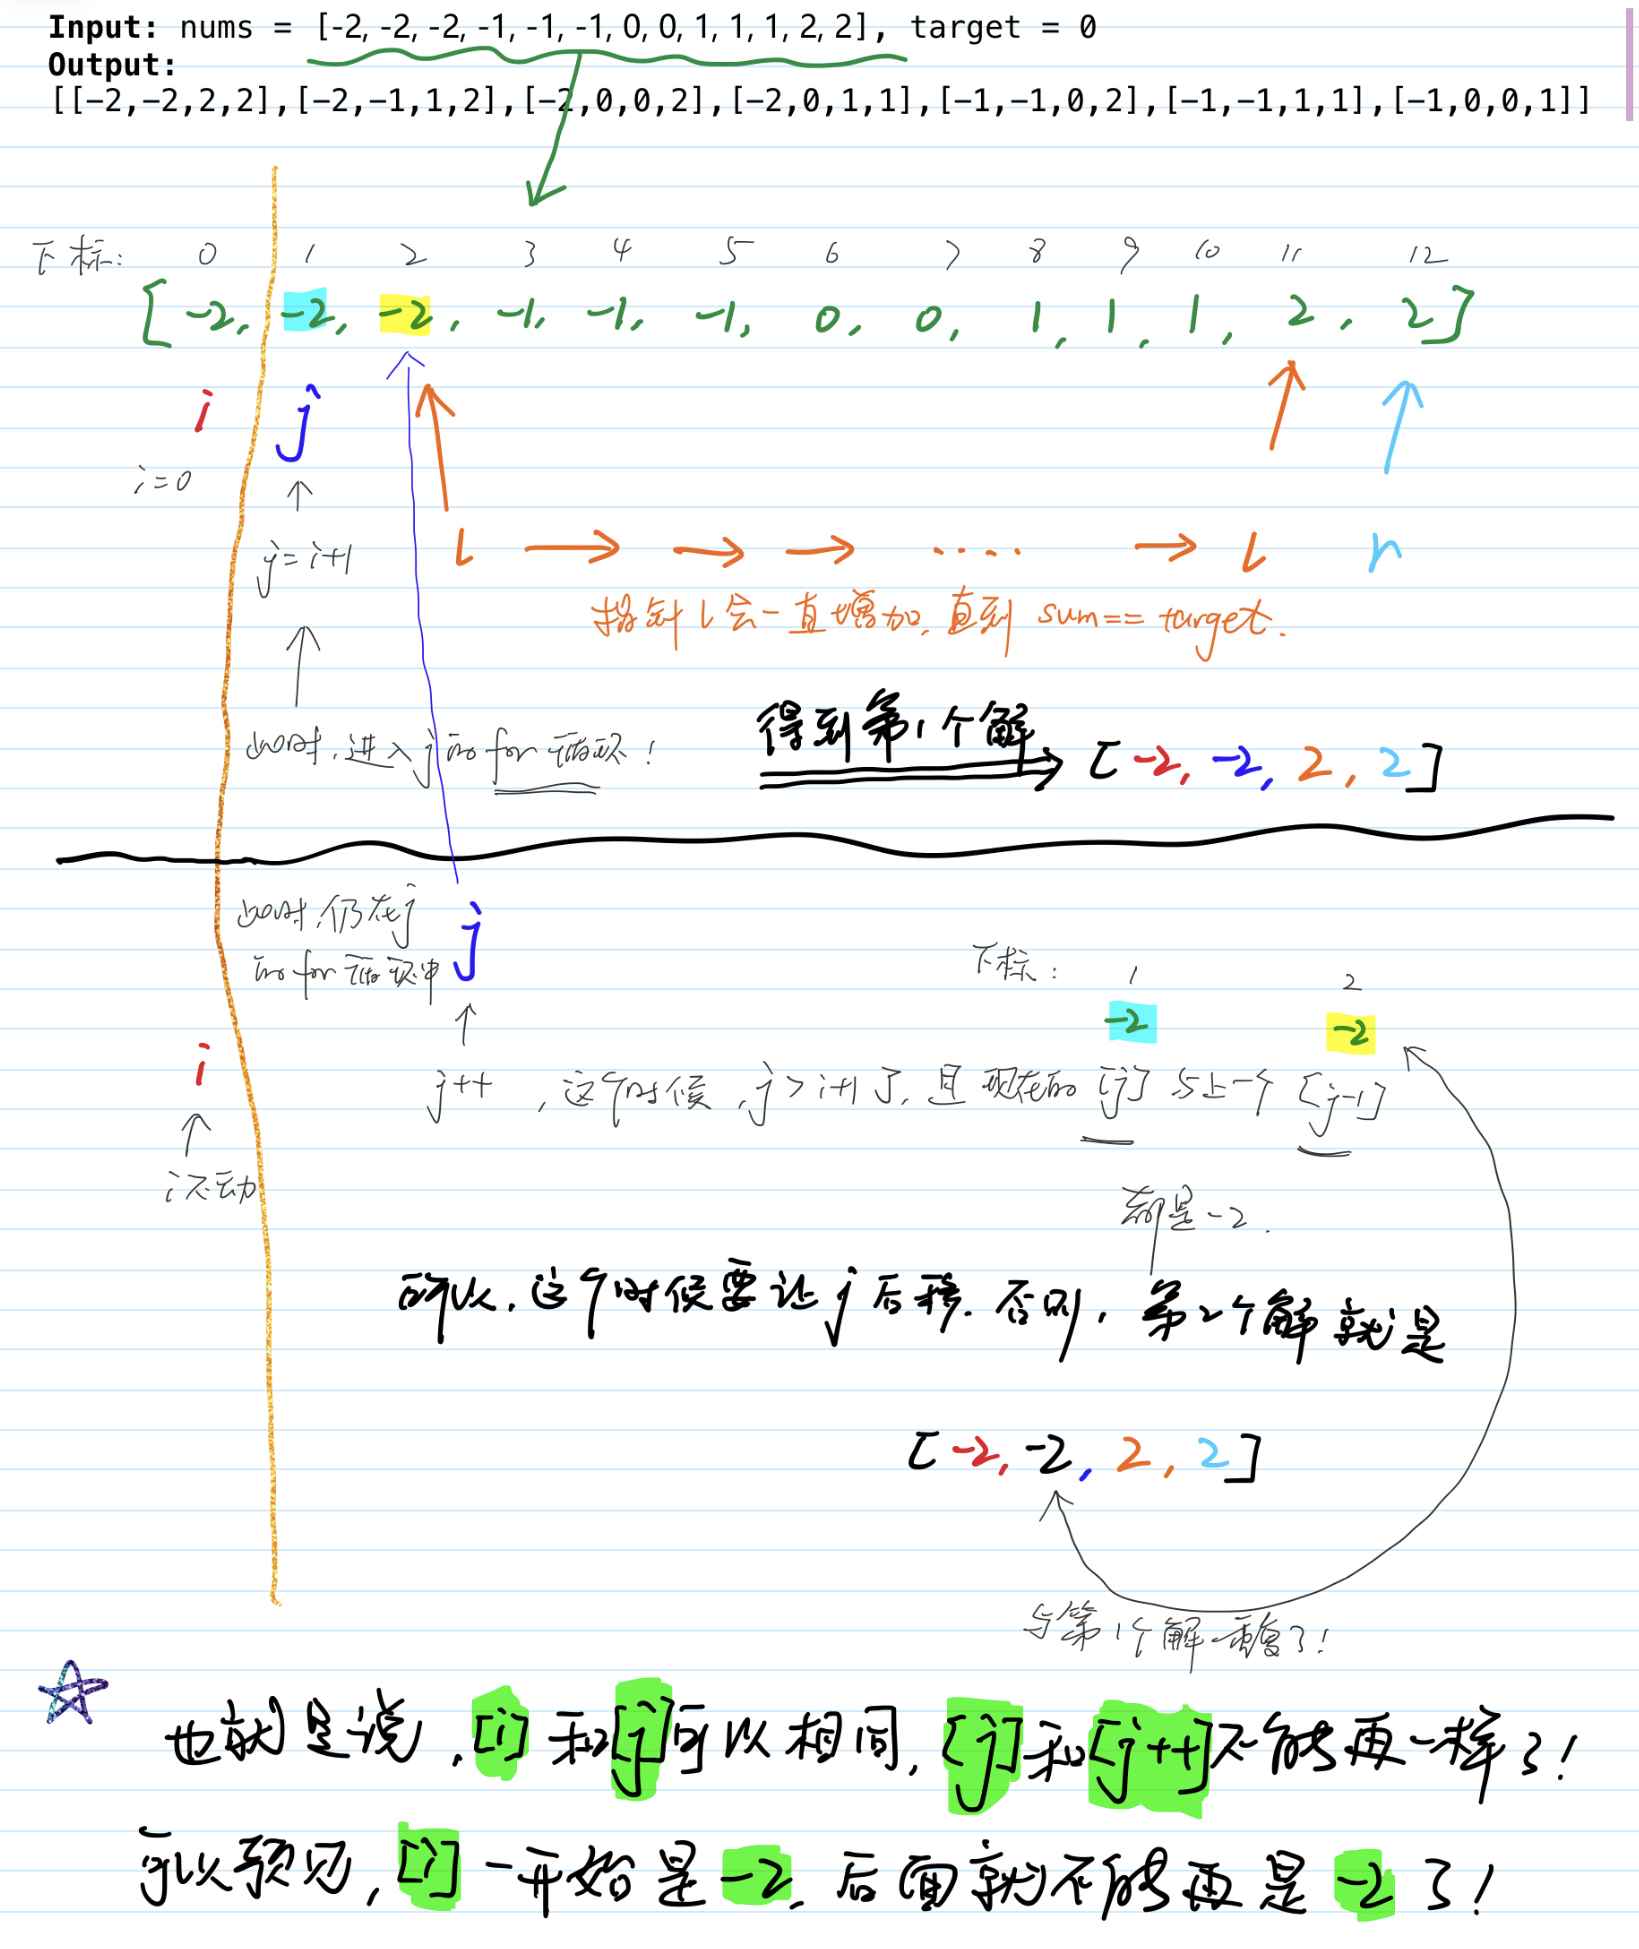 Input: nums = [-2, -2, -2, -1, -1, -1, 0, 0, 1, 1, 1, 2, 2], target = 0
Output:
[[-2,-2,2,2],[-2,-1,1,2],[-2,0,0,2],[-2,0,1,1],[-1,-1,0,2],[-1,-1,1,1],[-1,0,0,1]]
下标: 0 1 2 3 4 5 6 7 8 9 10 11 12
[-2, -2, -2, -1, -1, -1, 0, 0, 1, 1, 1, 2, 2]
i j
i=0
j=i+1
l .... l r
指针l会一直增加,直到 sum== target.
得到第1个解
此时,进入j的for循环!
[-2, -2, 2, 2]
此时,仍在j
的for循环中
j
下标: 1 2
-2 -2
i
j++ ,这个时候,j>i+1了,且现在的[j]与上一个[j-1]
i不动
都是-2.
所以,这个时候要让j后移.否则,第2个解就是
[-2, -2, 2, 2]
与第1个解重复了!
也就是说,[i]和[j]可以相同,[j]和[j++]不能再一样了!
可以预见,[i]一开始是-2,后面就不能再是-2了!